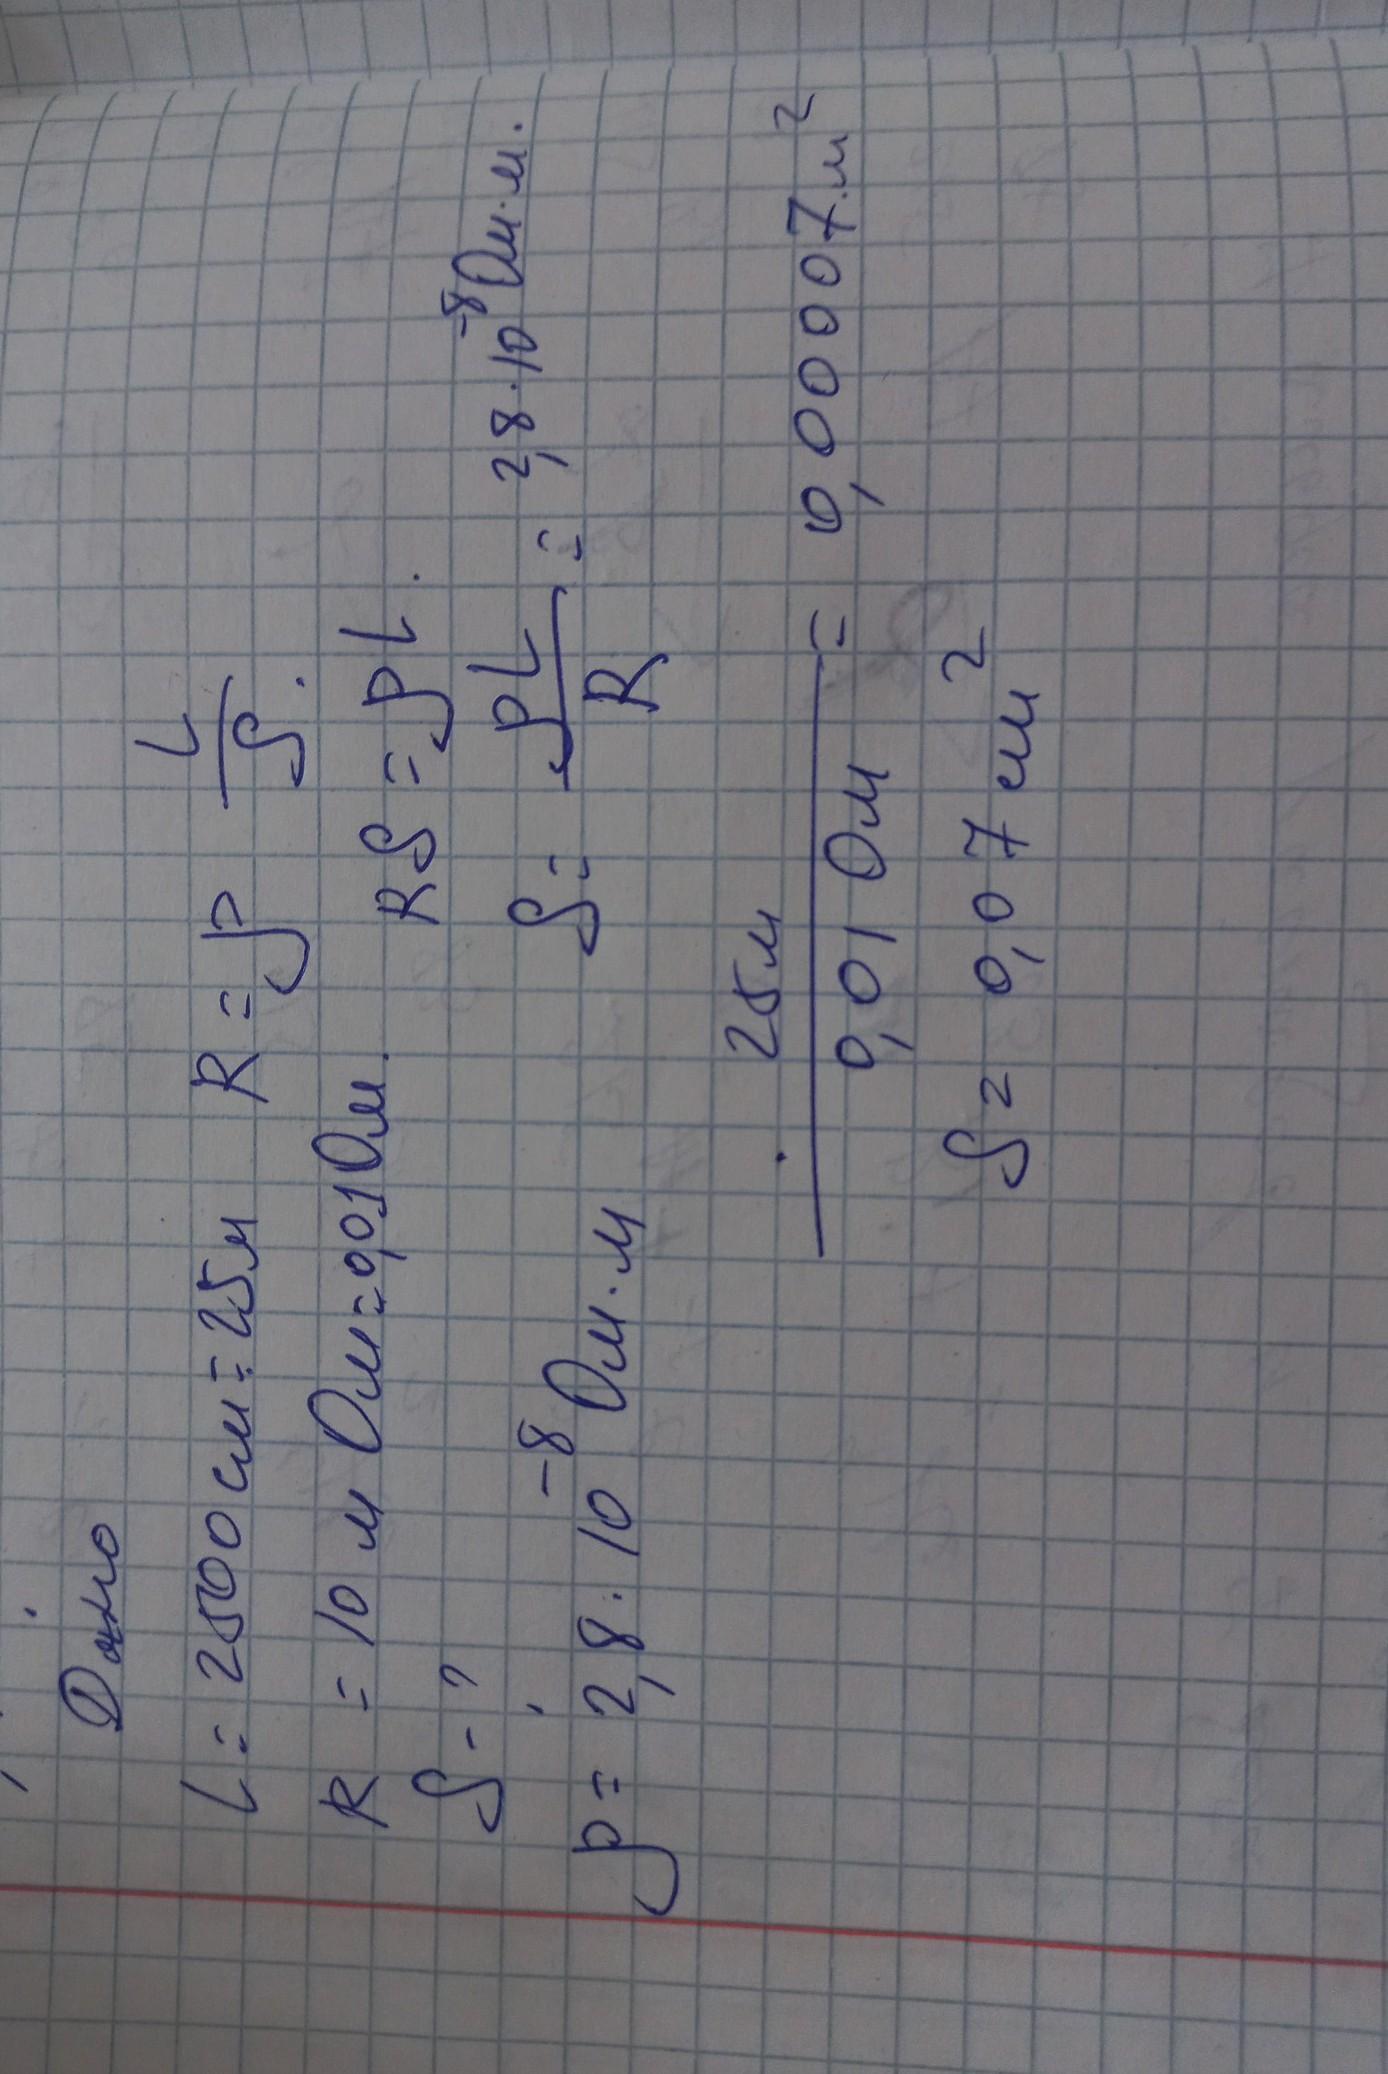 Дано
L = 2500 см = 25 м R = ρ L/S.
R = 10 м Ом = 0,01 Ом. RS = ρL.
S - ? S = ρL/R = 2,8 · 10⁻⁸ Ом·м.
ρ = 2,8 · 10⁻⁸ Ом·м
· 25 м / 0,01 Ом = 0,00007 м²
S = 0,07 см²